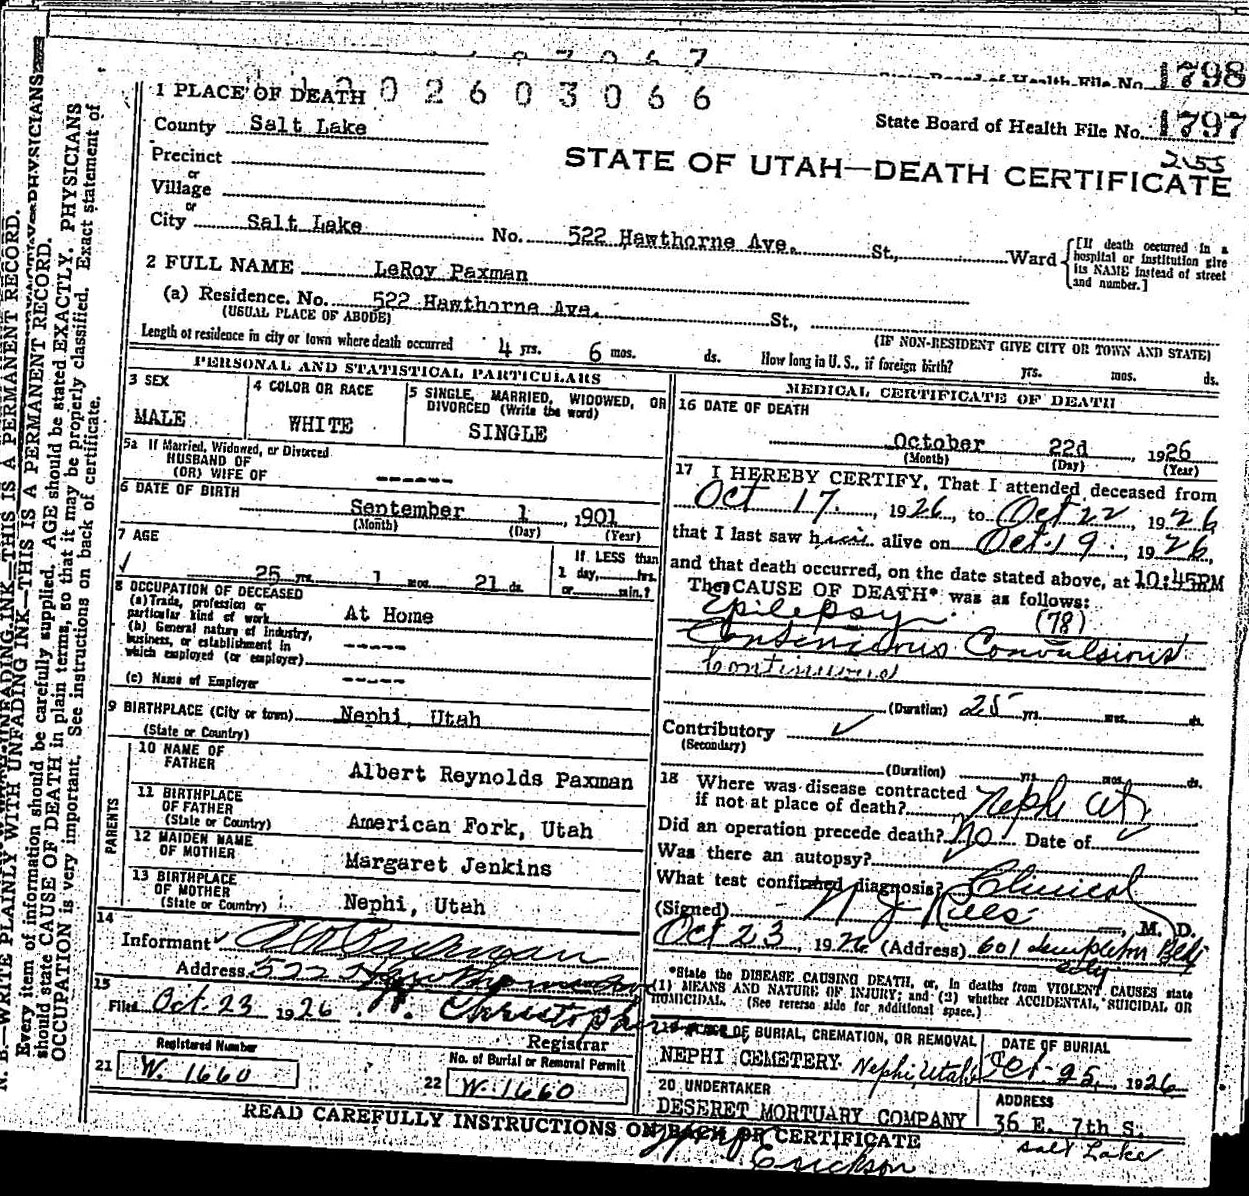 State Board of Health File No. 1798
1 PLACE OF DEATH 1 9 0 2 6 0 3 0 6 6
State Board of Health File No. 1797
2155
County Salt Lake
STATE OF UTAH—DEATH CERTIFICATE
Precinct
or
Village
or
City Salt Lake No. 522 Hawthorne Ave. St., Ward
[If death occurred in a hospital or institution give its NAME instead of street and number.]
2 FULL NAME LeRoy Paxman
(a) Residence. No. 522 Hawthorne Ave. St.,
(USUAL PLACE OF ABODE)
(IF NON-RESIDENT GIVE CITY OR TOWN AND STATE)
Length of residence in city or town where death occurred 4 yrs. 6 mos. ds. How long in U. S., if foreign birth? yrs. mos. ds.
PERSONAL AND STATISTICAL PARTICULARS
3 SEX
MALE
4 COLOR OR RACE
WHITE
5 SINGLE, MARRIED, WIDOWED, OR DIVORCED (Write the word)
SINGLE
5a If Married, Widowed, or Divorced
HUSBAND OF
(OR) WIFE OF ------
6 DATE OF BIRTH
September 1, 1901
(Month) (Day) (Year)
7 AGE
25 yrs. 1 mos. 21 ds.
If LESS than
1 day, hrs.
or min.?
8 OCCUPATION OF DECEASED
(a) Trade, profession or
particular kind of work At Home
(b) General nature of industry,
business, or establishment in
which employed (or employer) -----
(c) Name of Employer -----
9 BIRTHPLACE (City or town) Nephi, Utah
(State or Country)
PARENTS
10 NAME OF
FATHER Albert Reynolds Paxman
11 BIRTHPLACE
OF FATHER
(State or Country) American Fork, Utah
12 MAIDEN NAME
OF MOTHER Margaret Jenkins
13 BIRTHPLACE
OF MOTHER
(State or Country) Nephi, Utah
14
Informant
Address 522 Hawthorne Ave
15
Filed Oct. 23 1926
Registrar
Registered Number
21 W. 1660
No. of Burial or Removal Permit
22 W. 1660
MEDICAL CERTIFICATE OF DEATH
16 DATE OF DEATH
October 22d, 1926
(Month) (Day) (Year)
17 I HEREBY CERTIFY, That I attended deceased from
Oct 17, 1926, to Oct 22, 1926
that I last saw him alive on Oct. 19, 1926,
and that death occurred, on the date stated above, at 10:45PM
The CAUSE OF DEATH* was as follows:
Epilepsy (78)
Convulsions
(Duration) 25 yrs. mos. ds.
Contributory
(Secondary)
(Duration) yrs. mos. ds.
18 Where was disease contracted
if not at place of death? Nephi Ut
Did an operation precede death? No Date of
Was there an autopsy?
What test confirmed diagnosis? Clinical
(Signed) N J Rees, M. D.
Oct 23, 1926 (Address) 601 Templeton Bldg
City
*State the DISEASE CAUSING DEATH, or, in deaths from VIOLENT CAUSES state
(1) MEANS AND NATURE OF INJURY; and (2) whether ACCIDENTAL, SUICIDAL OR
HOMICIDAL. (See reverse side for additional space.)
19 PLACE OF BURIAL, CREMATION, OR REMOVAL
NEPHI CEMETERY Nephi, Utah
DATE OF BURIAL
Oct. 25, 1926
20 UNDERTAKER
DESERET MORTUARY COMPANY
ADDRESS
36 E. 7th S.
Salt Lake
READ CAREFULLY INSTRUCTIONS ON BACK OF CERTIFICATE
Erickson
N. B.—WRITE PLAINLY WITH UNFADING INK—THIS IS A PERMANENT RECORD.
Every item of information should be carefully supplied. AGE should be stated EXACTLY. PHYSICIANS
should state CAUSE OF DEATH in plain terms, so that it may be properly classified. Exact statement of
OCCUPATION is very important. See instructions on back of certificate.